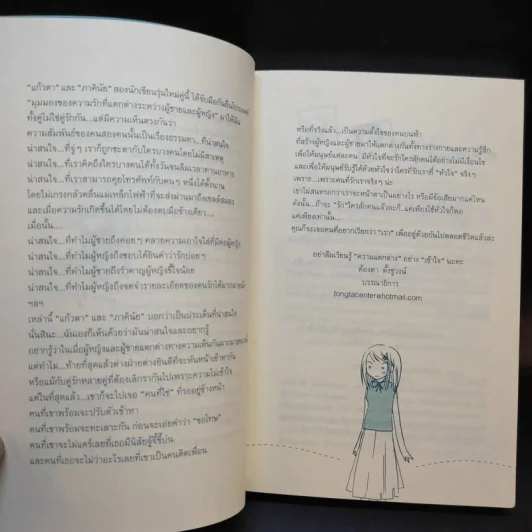 "แก้วตา" และ "ภาคินัย" สองนักเขียนรุ่นใหม่คู่นี้ ได้จับมือกัน
"มุมมองของความรักที่แตกต่างระหว่างผู้ชายและผู้หญิง" มาให้
ทั้งคู่ไม่ใช่คู่รักกัน...แต่มีความเห็นตรงกันว่า
ความสัมพันธ์ของคนสองคนนั้นเป็นเรื่องธรรมดา...ที่น่าสนใจ
น่าสนใจ...ที่จู่ๆ เราก็ถูกชะตากับใครบางคนโดยไม่มีสาเหตุ
น่าสนใจ...ที่เราคิดถึงใครบางคนได้ทั้งวันจนลืมเวลาทานอาหาร
น่าสนใจ...ที่เราสามารถคุยโทรศัพท์กับคนๆ หนึ่งได้ตั้งนาน
โดยไม่เกรงกลัวคลื่นแม่เหล็กไฟฟ้าที่จะส่งผ่านมาถึงเซลล์สมอง
และเมื่อความรักเกิดขึ้นได้โดยไม่ต้องตบมือข้างเดียว...
เมื่อนั้น....
น่าสนใจ...ที่ทำไมผู้ชายถึงค่อยๆ คลายความเอาใจใส่ที่มีต่อผู้หญิง
น่าสนใจ...ที่ทำไมผู้หญิงถึงชอบให้ยืนยันคำว่ารักบ่อยๆ
น่าสนใจ...ที่ทำไมผู้ชายถึงรำคาญผู้หญิงขี้ใจน้อย
น่าสนใจ...ที่ทำไมผู้หญิงถึงจดจำรายละเอียดของคนรักได้มากมาย
ฯลฯ
เหล่านี้ "แก้วตา" และ "ภาคินัย" บอกว่าเป็นประเด็นที่น่าสนใจ
นั่นสินะ...ฉันเองก็เห็นด้วยว่ามันน่าสนใจและอยากรู้
อยากรู้ว่าในเมื่อผู้หญิงและผู้ชายแตกต่างทางความเห็นกันมา
แต่ทำไม...ท้ายที่สุดแล้วต่างฝ่ายต่างยินดีที่จะหันหน้าเข้าหากัน
หรือแม้กับคู่รักหลายคู่ที่ต้องเลิกรากันไปเพราะความไม่เข้าใจ
แต่ในที่สุดแล้ว...เขาก็จะไปเจอ "คนที่ใช่" ที่รออยู่ข้างหน้า
คนที่เขาพร้อมจะปรับตัวเข้าหา
คนที่เขาพร้อมจะทะเลาะกัน ก่อนจะเอ่ยคำว่า "ขอโทษ"
คนที่เขาจะไม่แคร์เลยที่เธอมีนิสัยจู้จี้ขี้บ่น
และคนที่เธอจะไม่ว่าอะไรเลยที่เขาเป็นคนติดเพื่อน
หรือที่จริงแล้ว...เป็นความตั้งใจของคนบนฟ้า
ที่สร้างผู้หญิงและผู้ชายมาให้แตกต่างกันทั้งทางร่างกายและความรู้สึก
เพื่อให้มนุษย์แต่ละคน มีหัวใจที่จะรักใครสักคนได้อย่างไม่มีเงื่อนไข
และเพื่อให้มนุษย์รับรู้ได้ด้วยหัวใจว่าใครที่รักเราที่ "หัวใจ" จริงๆ
เพราะ...เพราะคนที่รักเราจริงๆ น่ะ
เขาไม่สนหรอกว่าเราจะหน้าตาเป็นอย่างไร หรือมีข้อเสียมากแค่ไหน
ดังนั้น...ถ้าจะ "รัก" ใครสักคนแล้วละก็...แค่เพียงใช้หัวใจก็พอ
แค่เพียงเท่านั้น...
คุณก็จะเจอคนที่อยากเรียกว่า "เรา" เพื่ออยู่ด้วยกันไปตลอดชีวิตแล้วล่ะ
อย่าลืมเรียนรู้ "ความแตกต่าง" อย่าง "เข้าใจ" นะคะ
ต้องตา ตั้งชูวงษ์
บรรณาธิการ
tongtacenter@hotmail.com